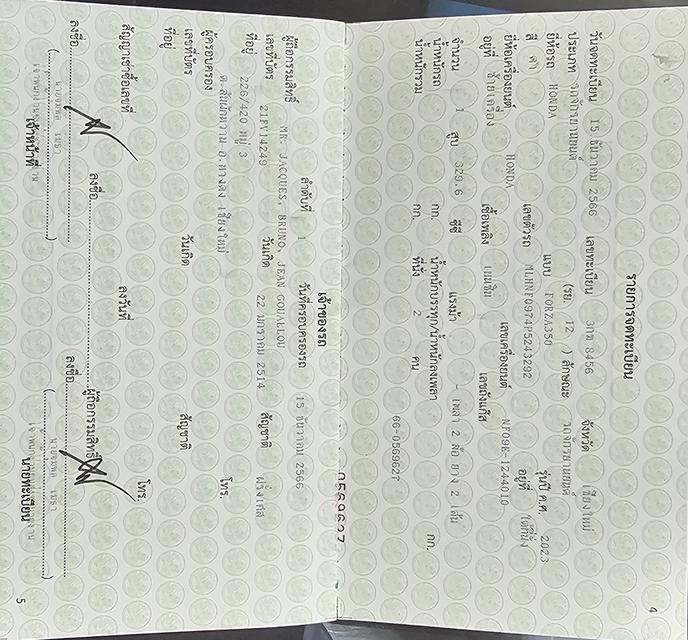 4
รายการจดทะเบียน
วันจดทะเบียน 15 ธันวาคม 2566 เลขทะเบียน 3กท 8456 จังหวัด เชียงใหม่
ประเภท รถจักรยานยนต์ (รย. 12 ) ลักษณะ รถจักรยานยนต์
ยี่ห้อรถ HONDA แบบ FORZA350 รุ่นปี ค.ศ. 2023
สี ดำ เลขตัวรถ MLHNF0974P5243292 อยู่ที่ ใต้ที่นั่ง
ยี่ห้อเครื่องยนต์ HONDA เลขเครื่องยนต์ NF09E-1244010
อยู่ที่ ซ้ายเครื่อง เชื้อเพลิง เบนซิน เลขถังแก๊ส
จำนวน 1 สูบ 329.6 ซีซี แรงม้า - เพลา 2 ล้อ ยาง 2 เส้น
น้ำหนักรถ กก. น้ำหนักบรรทุก/น้ำหนักลงเพลา กก.
น้ำหนักรวม กก. ที่นั่ง 2 คน
66-0569627
0569627
เจ้าของรถ
ลำดับที่ 1 วันที่ครอบครองรถ 15 ธันวาคม 2566
ผู้ถือกรรมสิทธิ์ MR. JACQUES, BRUNO, JEAN GOUALLOU
เลขที่บัตร 21FV14249 วันเกิด 22 มกราคม 2514 สัญชาติ ฝรั่งเศส
ที่อยู่ 226/420 หมู่ 3
ต.สันผักหวาน อ.หางดง เชียงใหม่ โทร.
ผู้ครอบครอง
เลขที่บัตร วันเกิด สัญชาติ
ที่อยู่
โทร.
สัญญาเช่าซื้อเลขที่ ลงวันที่
ลงชื่อ ผู้ถือกรรมสิทธิ์
ลงชื่อ ลงชื่อ
เจ้าหน้าที่ นายทะเบียน
5